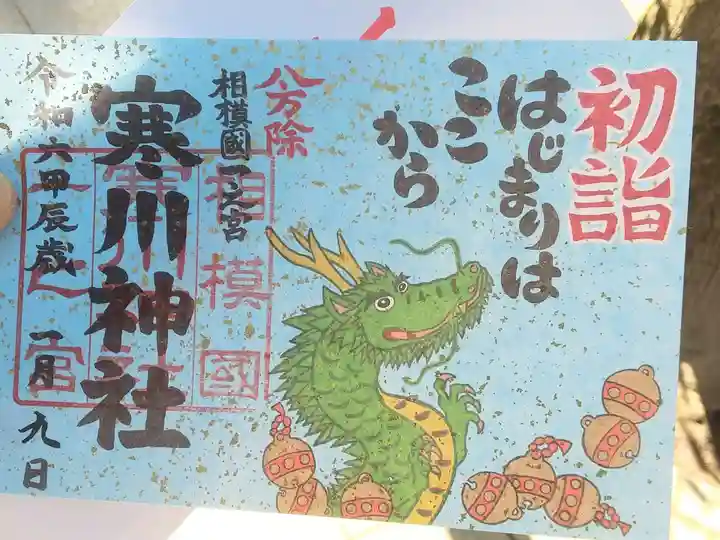 初詣
はじまりは
ここ
から
八方除
相模國一之宮
寒川神社
相模國
一之宮
令和六甲辰歳 一月 九日